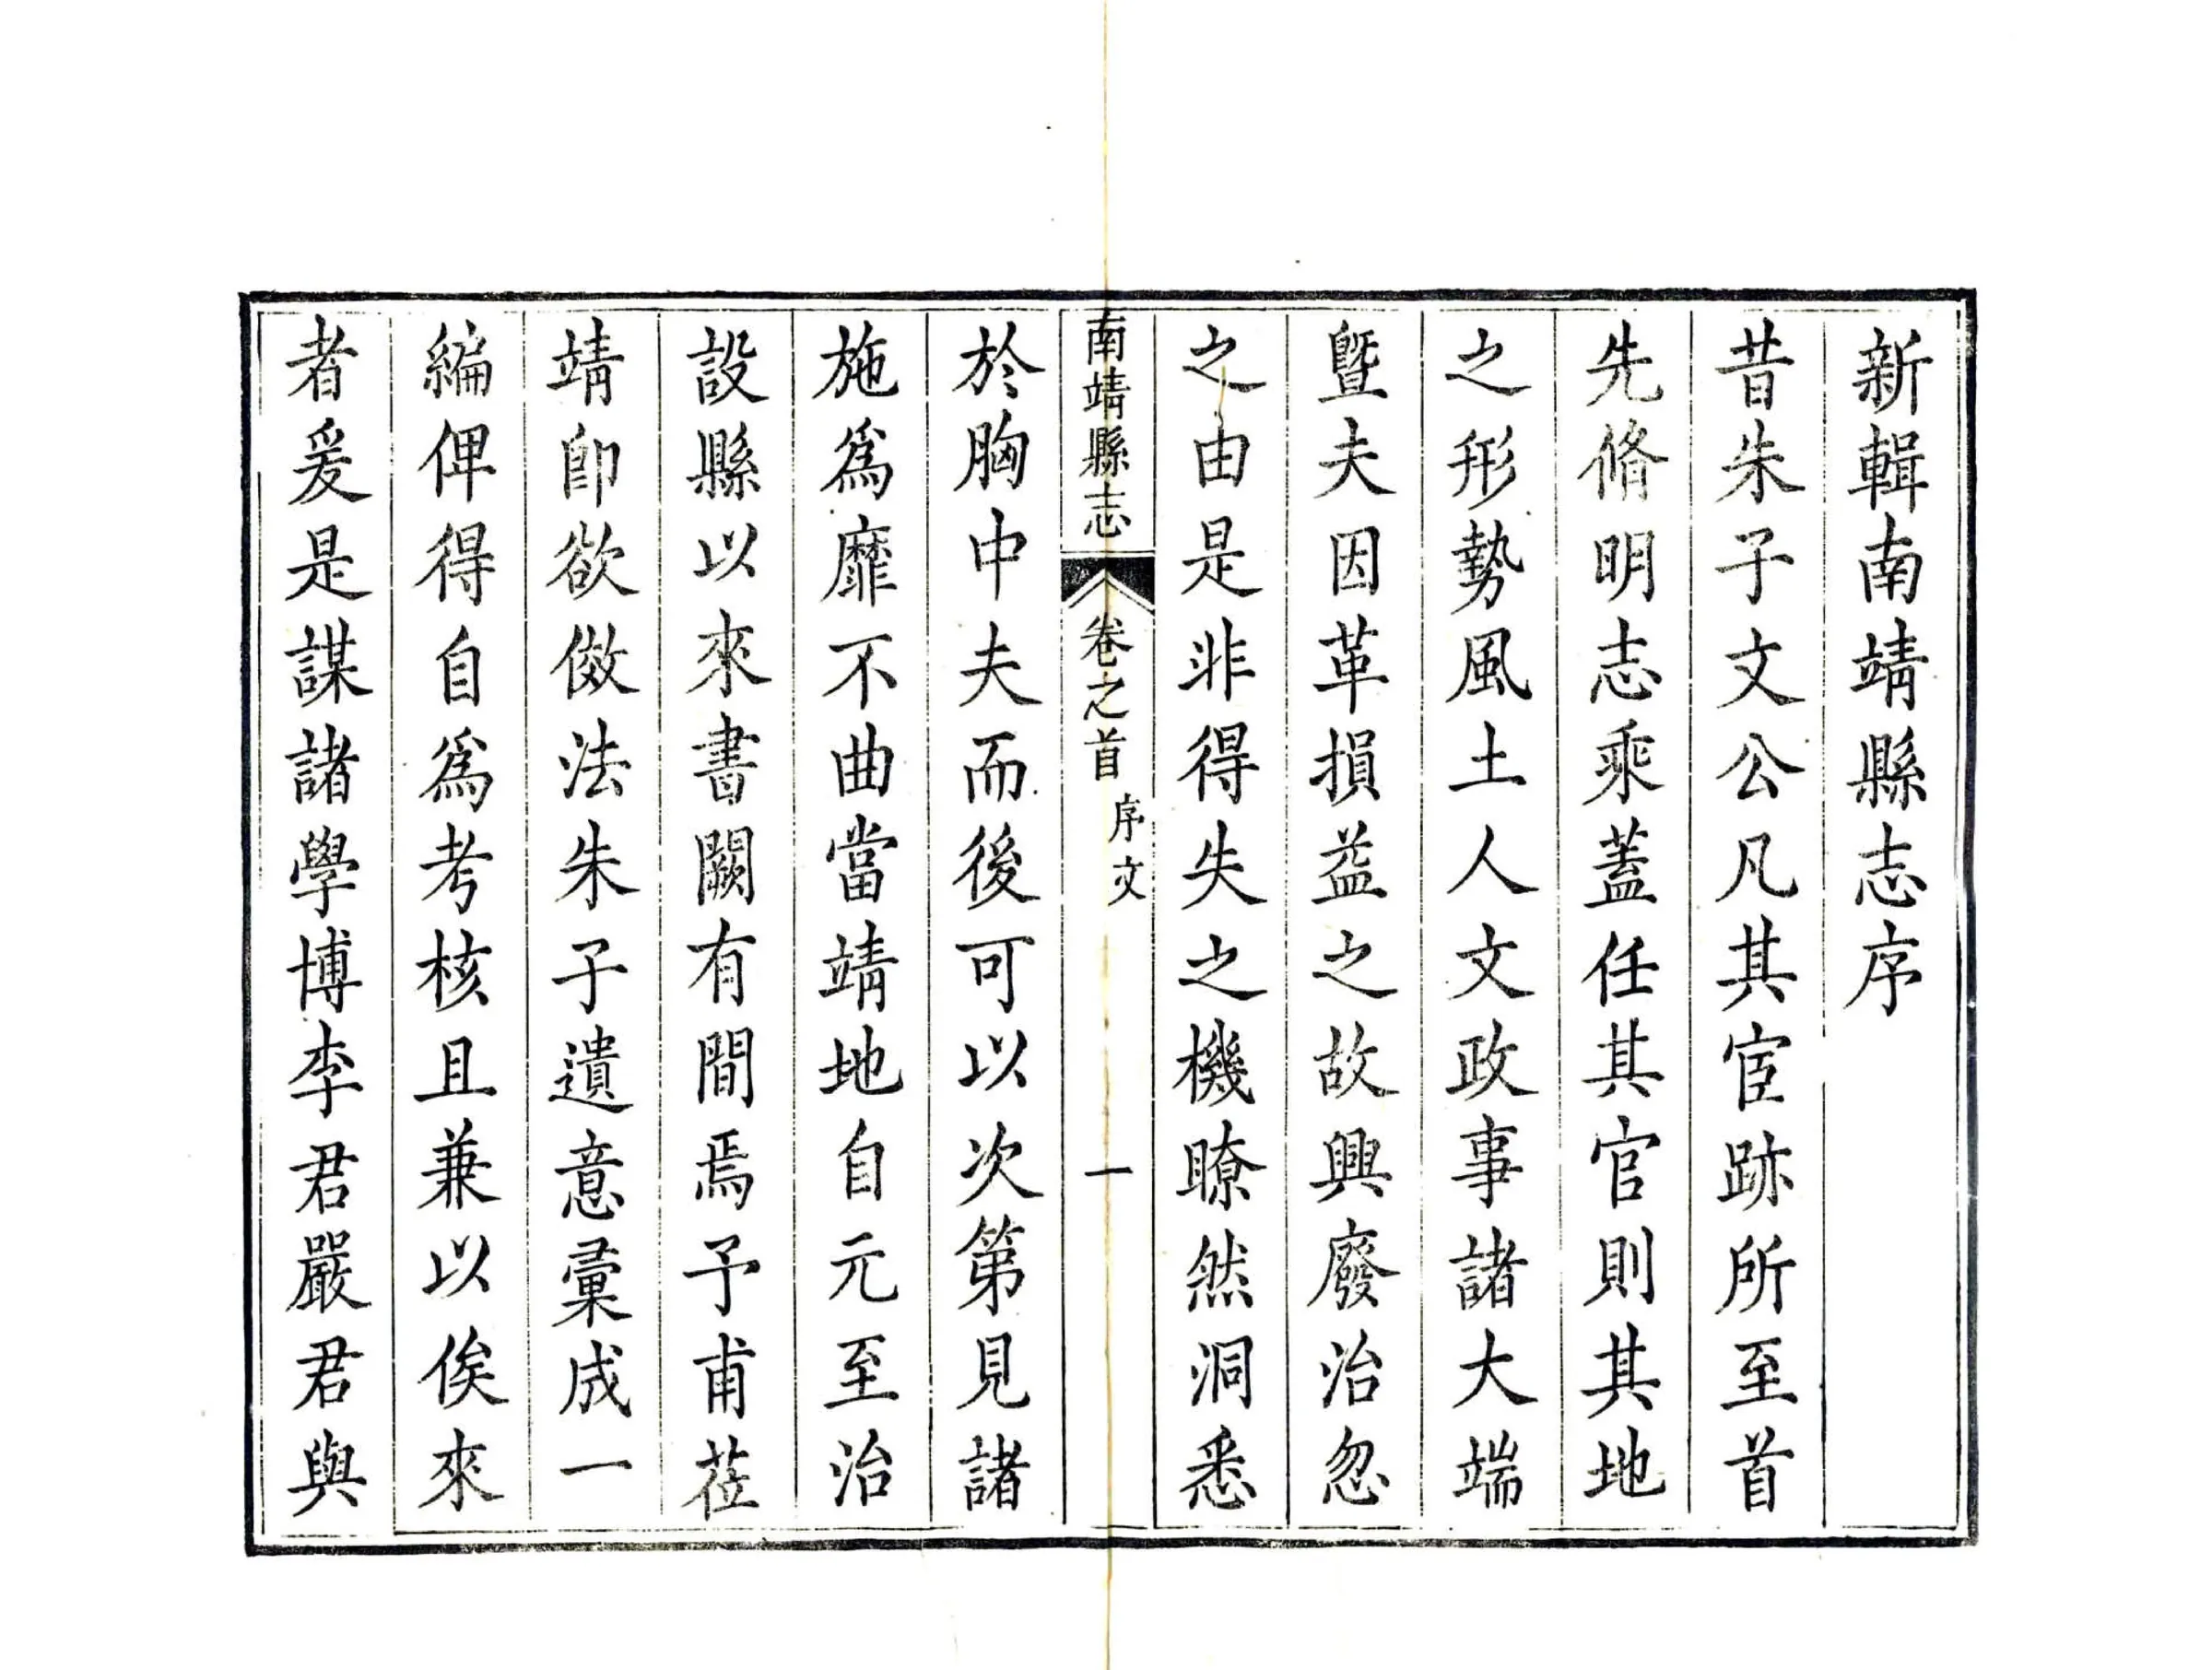 新輯南靖縣志序
昔朱子文公凡其宦跡所至首
先脩明志乘蓋任其官則其地
之形勢風土人文政事諸大端
曁夫因革損益之故興廢治忽
之由是非得失之機瞭然洞悉
南靖縣志 卷之首 序文 一
於胸中夫而後可以次第見諸
施爲靡不曲當靖地自元至治
設縣以來書闕有間焉予甫莅
靖卽欲倣法朱子遺意彙成一
編俾得自爲考核且兼以俟來
者爰是謀諸學博李君嚴君與